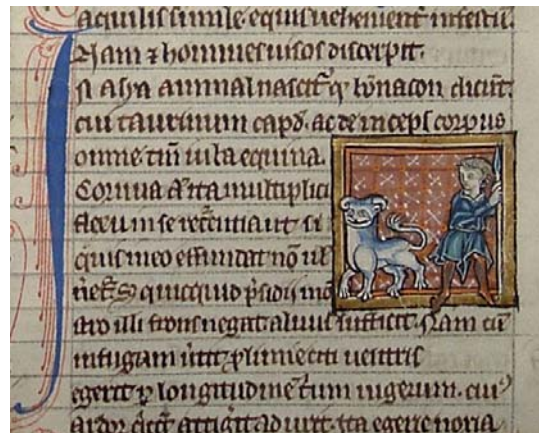 aquilis simile. equis uehement infestū.
Nam ⁊ homines uisos discerpit.
In asya animal nascit̃ qͥ bonacon dicūt.
cui taurinum capđ. ac deinceps corpus
omne. tm̄ iuba equina.
Cornua aͫ ita multiplici
flexu in se recurentia ut si
quis in eo offendat nō uł
neret᷑. S quicquid p̄sidii mō
stro illi frons negat aluus sufficit. Nam cū
in fugam uertit ꝓfluuie citi uentris
egerit ꝑ longitudinē triū iugerum. cuiꝰ
ardor quicquid attigit aduret. ita egerie noxia